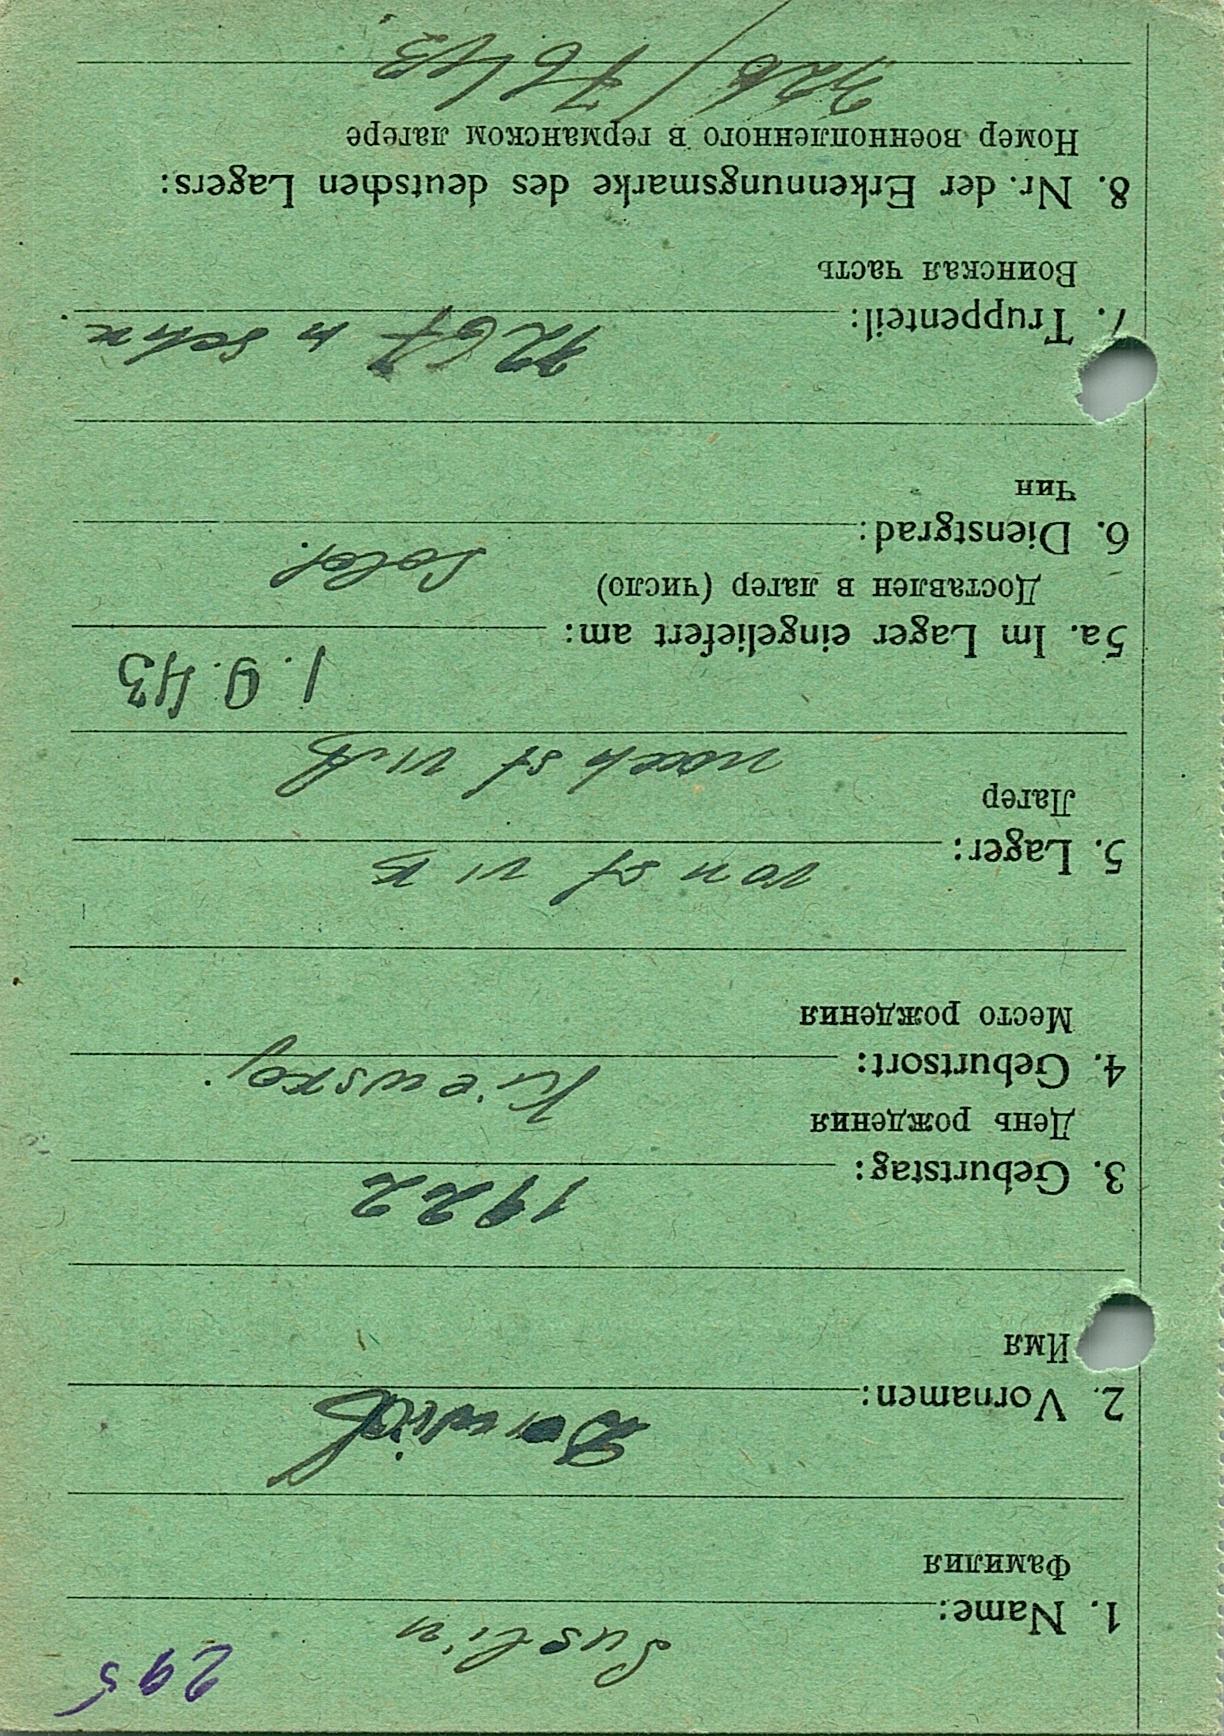 295
1. Name: Suslin
Фамилия
2. Vornamen:
Имя
3. Geburtstag: 1922
День рождения
4. Geburtsort: Kiewskoj.
Место рождения
5. Lager: von st VI B
Лагер
nach st VI A
5a. Im Lager eingeliefert am: 1.9.43
Доставлен в лагер (число)
6. Dienstgrad: Sold.
Чин
7. Truppenteil: 1267
Воинская часть
8. Nr. der Erkennungsmarke des deutschen Lagers:
Номер военнопленного в германском лагере
326/